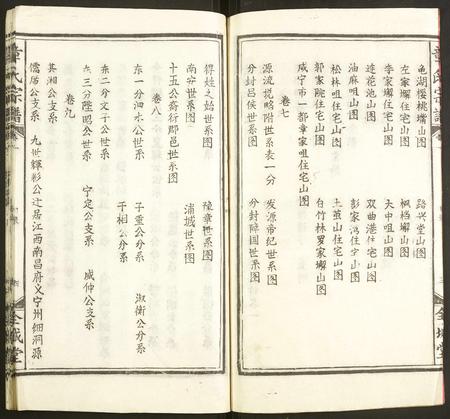 章氏宗譜
龟湖樱桃墕山图 路兴堂山图
左家墕住宅山图 枫梧墕山图
李家墕住宅山图 大中咀山图
莲花池山图 双曲港住宅山图
油麻咀山图 彭家湾住宅山图
松林咀住宅山图 土茧山住宅山图
郭家院住宅山图 白竹林罗家墕山图
咸宁市一都章家咀住宅山图
卷七
源流悦略附世系表一分 发源帝纪世系图
分封吕侯世系图 分封障国世系图
金城堂
章氏宗譜
得姓之始世系图 豫章世系图
南安世系图 浦城世系图
十五公裔衍郡邑世系图
卷八
东一分泗水公世系 子重公分系 淑衡公分系
东二分文子公世系 子相公分系
东三分陞昭公世系 宁定公支系 成仲公支系
卷九
其湘公支系
儒居公支系 九世辉彩公迁居江西南昌府义宁州细洞源
金城堂